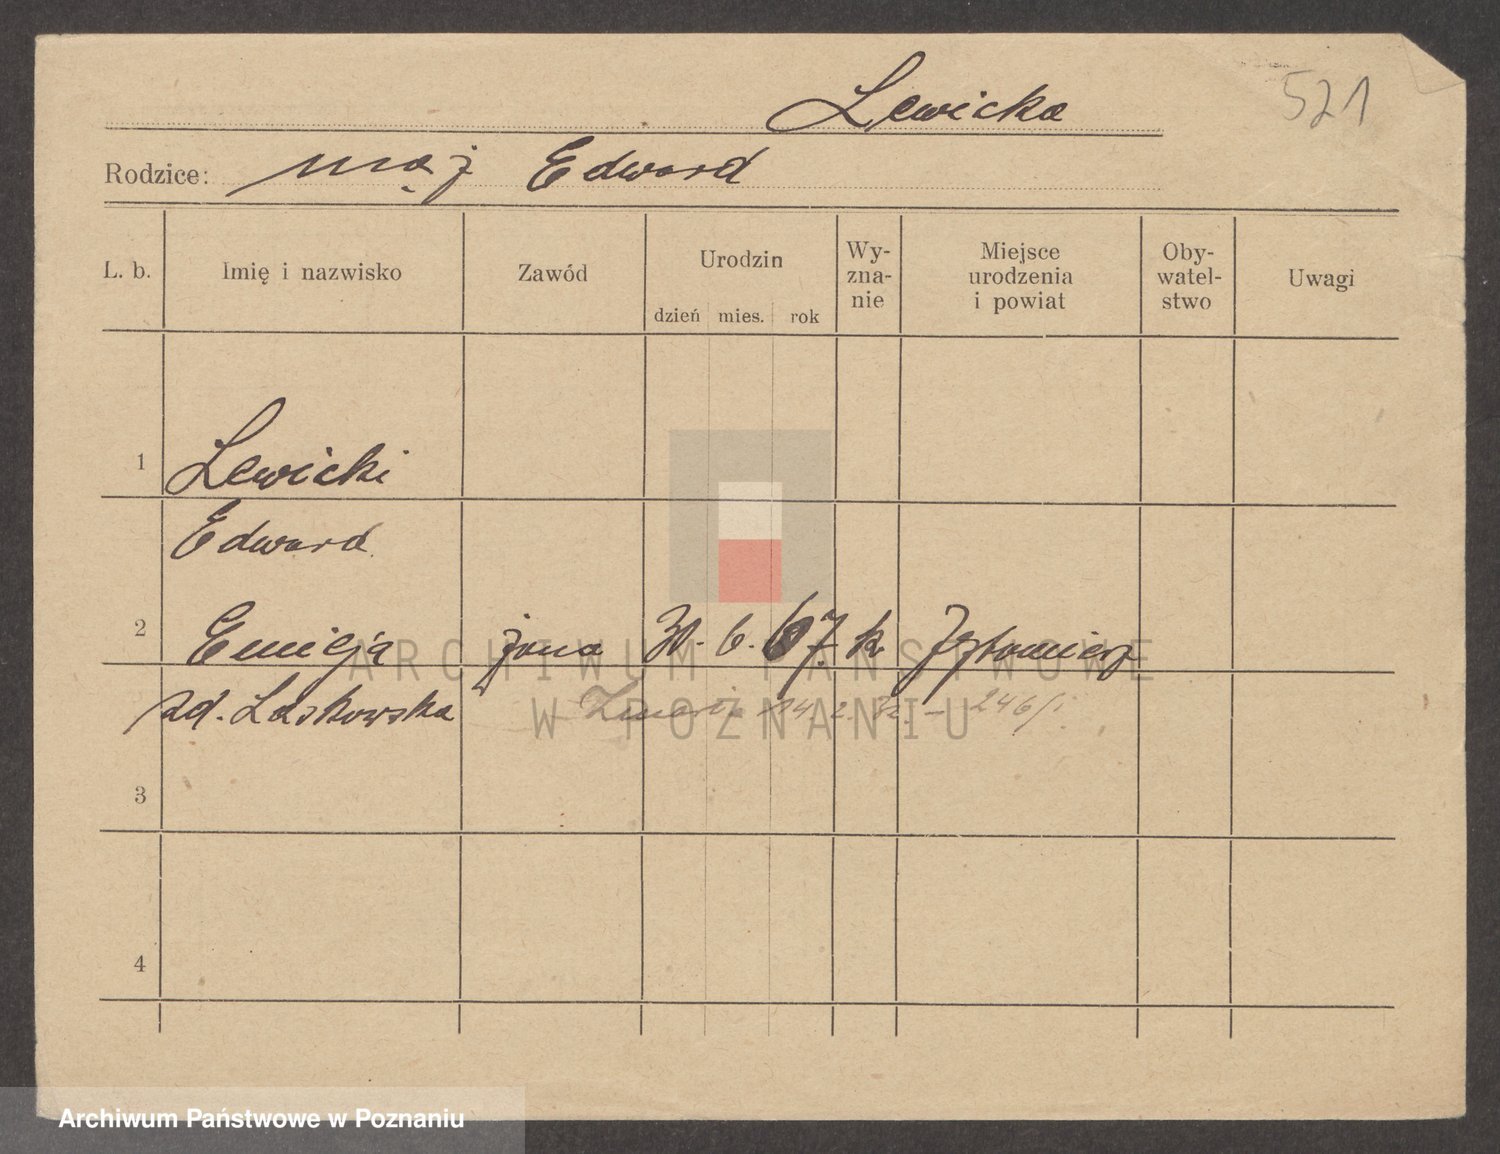 Lewicka
521
Rodzice: mąż Edward
L. b. Imię i nazwisko Zawód Urodzin dzień mies. rok Wy-zna-nie Miejsce urodzenia i powiat Oby-watel-stwo Uwagi
1 Lewicki
Edward
2 Emilja żona 30. 6. 67. k Żytomierz
zd. Laskowska 14. 2. 246/
3
4
ARCHIWUM PAŃSTWOWE
W POZNANIU
Archiwum Państwowe w Poznaniu